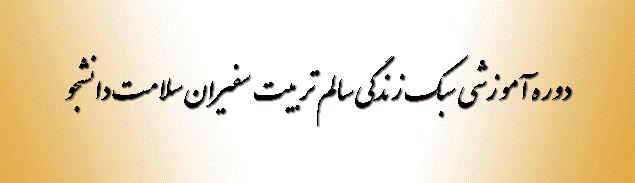 دوره آموزشی سبک زندگی سالم تربیت سفیران سلامت دانشجو